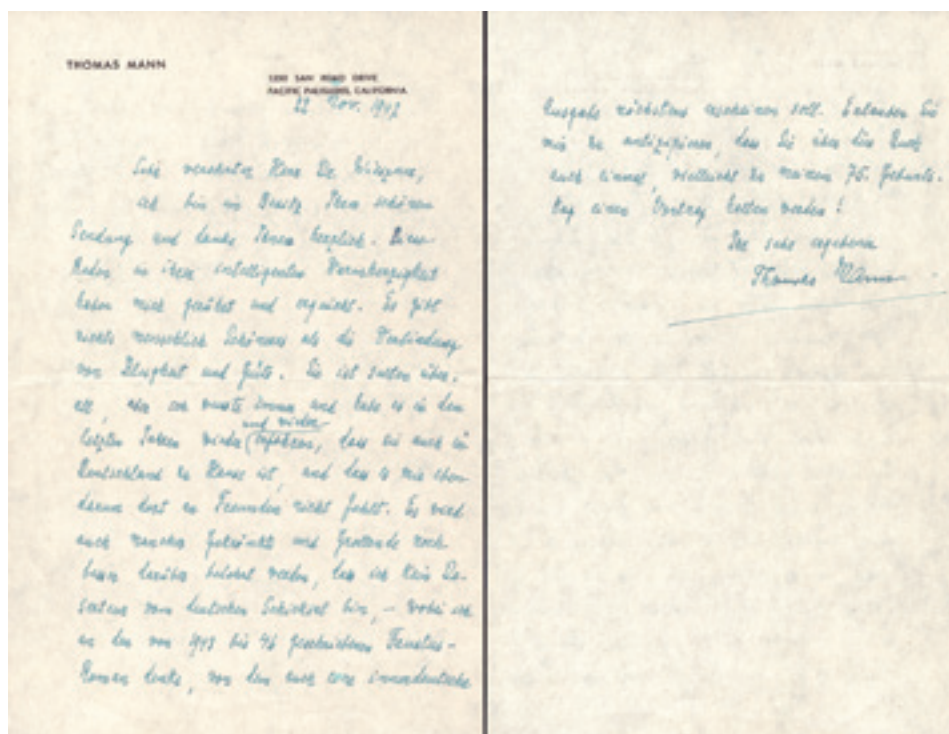 THOMAS MANN
1550 SAN REMO DRIVE
PACIFIC PALISADES, CALIFORNIA
22. Nov. 1947
Sehr verehrter Herr Dr.
ich bin im Besitz Ihrer schönen
Sendung und danke Ihnen herzlich. Diese
Reden in ihrer intelligenten Warmherzigkeit
haben mich gerührt und erquickt. Es gibt
nichts menschlich Schöneres als die Verbindung
von Klugheit und Güte. Sie ist selten über-
all, aber ich wusste immer und habe es in den
letzten Jahren wieder und wieder erfahren, dass sie auch in
Deutschland zu Hause ist, und dass es mir eben
darum dort an Freunden nicht fehlt. Es wird
auch mancher Gekränkte und Grollende noch
besser darüber belehrt werden, dass ich kein De-
serteur vom deutschen Schicksal bin, – wobei ich
an den von 1943 bis 46 geschriebenen Faustus-
Roman denke, von dem auch eine innerdeutsche
Ausgabe nächstens erscheinen soll. Erlauben Sie
mir zu antizipieren, dass Sie über dies Buch
auch einmal, vielleicht zu meinem 75. Geburts-
tag einen Vortrag halten werden!
Ihr sehr ergebener
Thomas Mann